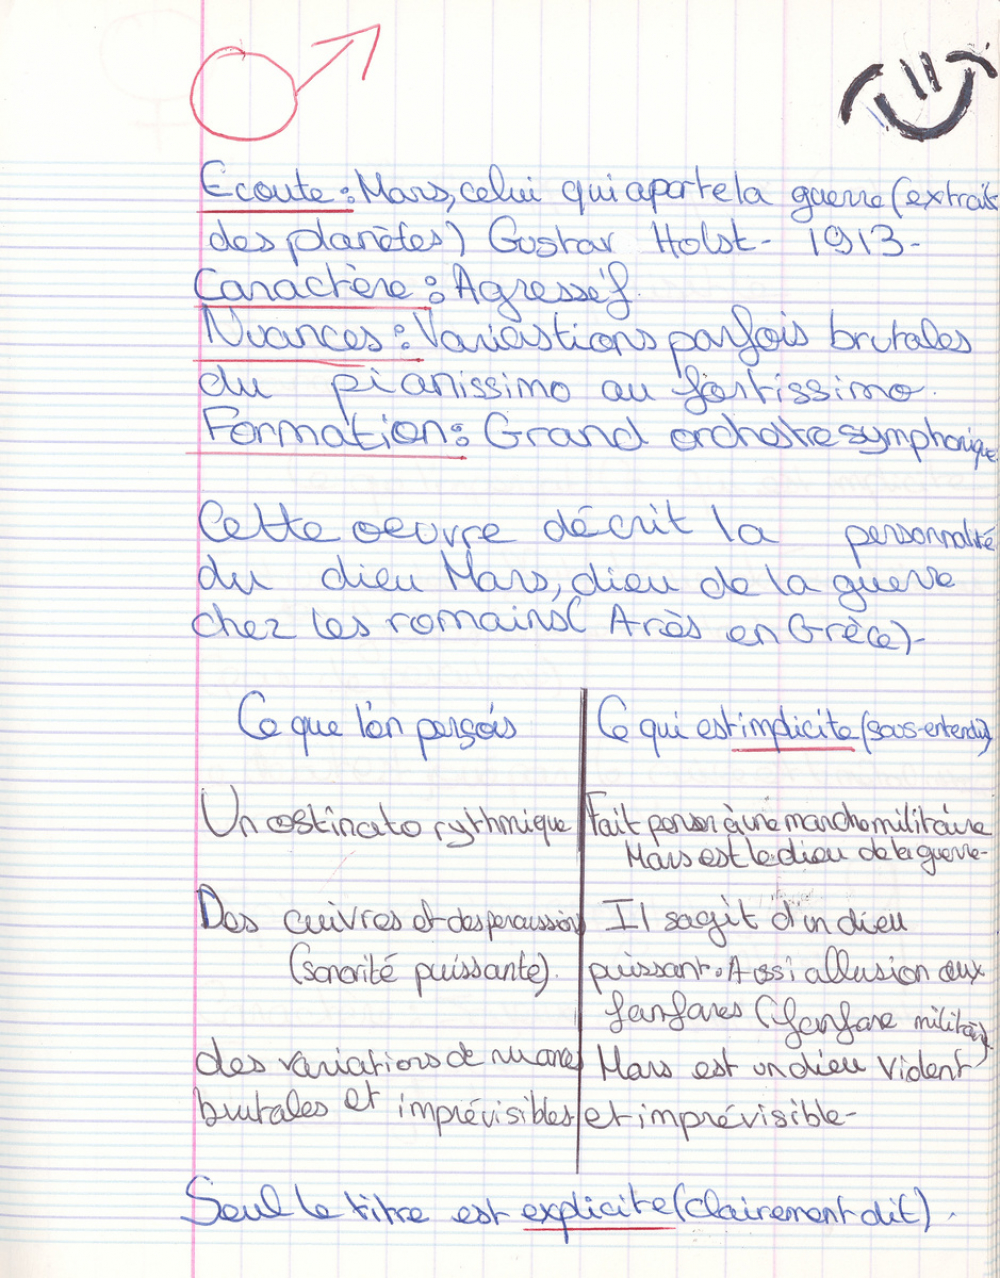 Ecoute : Mars, celui qui aporte la guerre (extrait
des planètes) Gustav Holst - 1913 -
Caractère : Agressif.
Nuances : Variastions parfois brutales
du pianissimo au fortissimo.
Formation : Grand orchestre symphonique
Cette oeuvre décrit la personnalité
du dieu Mars, dieu de la guerre
chez les romains ( Arès en Grèce) -
Ce que l'on persois | Ce qui est implicite (sous-entendu)
Un ostinato rythmique | Fait penser à une marche militaire
Mars est le dieu de la guerre -
Des cuivres et des percussions | Il sagit d'un dieu
(sonorité puissante). | puissant. Aussi allusion aux
fanfares (fanfare militaire)
des variations de nuances | Mars est un dieu violent
brutales et imprévisibles | et imprévisible -
Seul le titre est explicite (clairement dit).